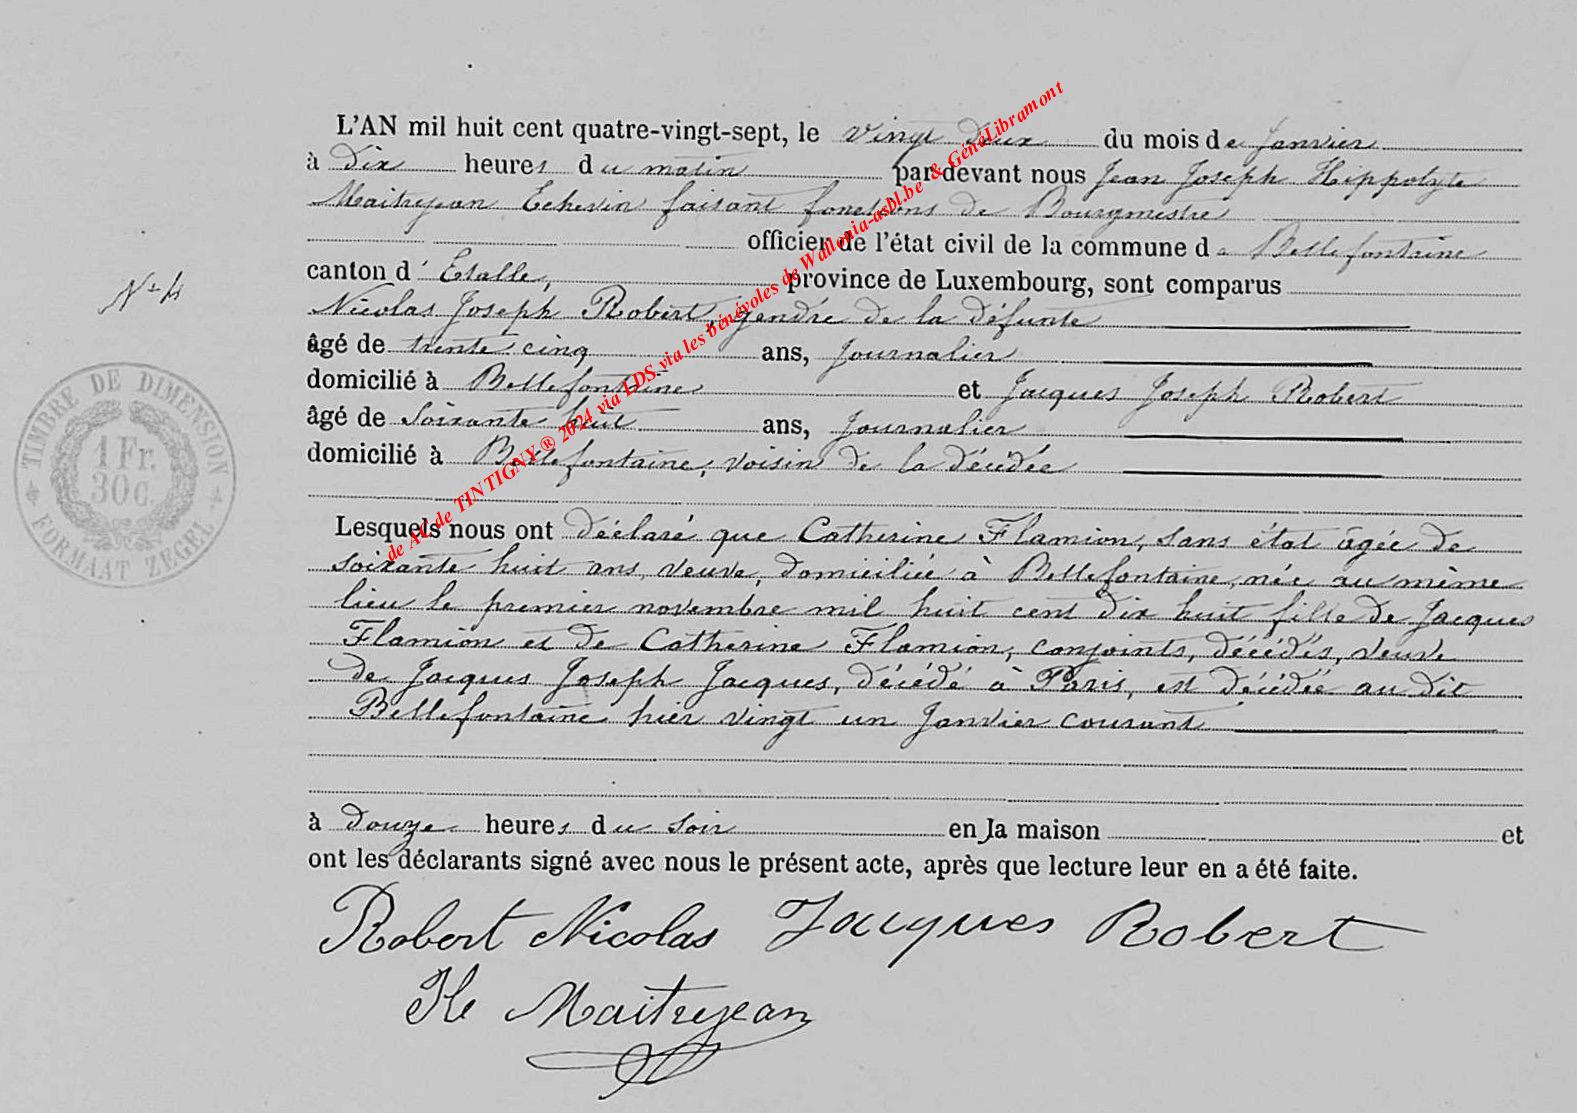 L'AN mil huit cent quatre-vingt-sept, le vingt deux du mois de Janvier
à dix heures du matin par-devant nous Jean Joseph Hippolyte
Maitrejean Echevin faisant fonctions de Bourgmestre
officier de l'état civil de la commune de Bellefontaine
canton d'Etalle, province de Luxembourg, sont comparus
Nicolas Joseph Robert, gendre de la défunte
âgé de trente cinq ans, Journalier
domicilié à Bellefontaine et Jacques Joseph Robert
âgé de soixante huit ans, Journalier
domicilié à Bellefontaine, voisin de la décédée
Lesquels nous ont déclaré que Catherine Flamion, sans état âgée de
soixante huit ans, veuve, domiciliée à Bellefontaine, née au même
lieu le premier novembre mil huit cent dix huit fille de Jacques
Flamion et de Catherine Flamion, conjoints, décédés, veuve
de Jacques Joseph Jacques, décédé à Paris, est décédée au dit
Bellefontaine hier vingt un Janvier courant
à douze heures du soir en la maison et
ont les déclarants signé avec nous le présent acte, après que lecture leur en a été faite.
Robert Nicolas Jacques Robert
Hte Maitrejean
N° 4
TIMBRE DE DIMENSION
1 Fr.
30 C.
FORMAAT ZEGEL
de AC de TINTIGNY ® 2024 via LDS via les bénévoles de Wallonia-asbl.be & GénéLibramont